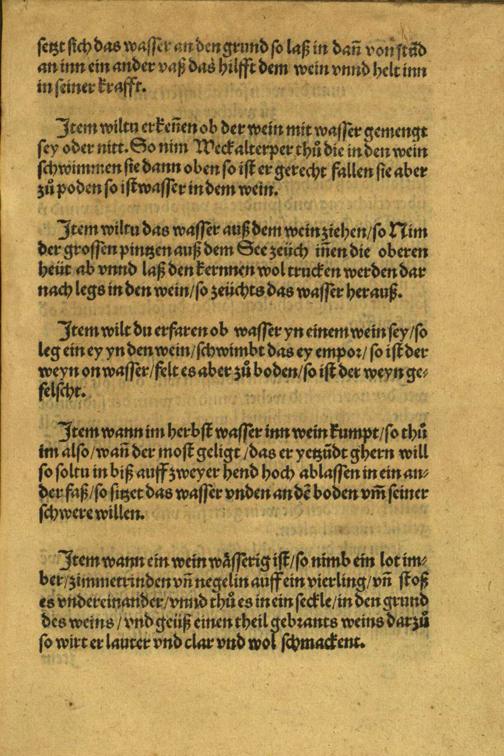 setzt sich das wasser an den grund so laß in dañ von stãd
an inn ein ander vaß das hilfft dem wein vnnd helt inn
in seiner krafft.
Item wiltu erkeñen ob der wein mit wasser gemengt
sey oder nitt. So nim Weckalterper thů die in den wein
schwimmen sie dann oben so ist er gerecht fallen sie aber
zů poden so ist wasser in dem wein.
Item wiltu das wasser auß dem wein ziehen/so Nim
der grossen pintzen auß dem See zeüch iñen die oberen
heüt ab vnnd laß den kernnen wol trucken werden dar
nach legs in den wein/so zeüchts das wasser herauß.
Item wilt du erfaren ob wasser yn einem wein sey/so
leg ein ey yn den wein/schwimbt das ey empor/so ist der
weyn on wasser/felt es aber zů boden/so ist der weyn ge-
felscht.
Item wann im herbst wasser inn wein kumpt/so thů
im also/wañ der most geligt/das er yetzũdt ghern will
so soltu in biß auff zweyer hend hoch ablassen in ein an-
der faß/so sitzet das wasser vnden an dẽ boden vm̃ seiner
schwere willen.
Item wann ein wein wässerig ist/so nimb ein lot im-
ber/zimmetrinden vñ negelin auff ein vierling/vñ stoß
es vndereinander/vnnd thů es in ein seckle/in den grund
des weins/vnd geüß einen theil gebrants weins darzů
so wirt er lauter vnd clar vnd wol schmackent.